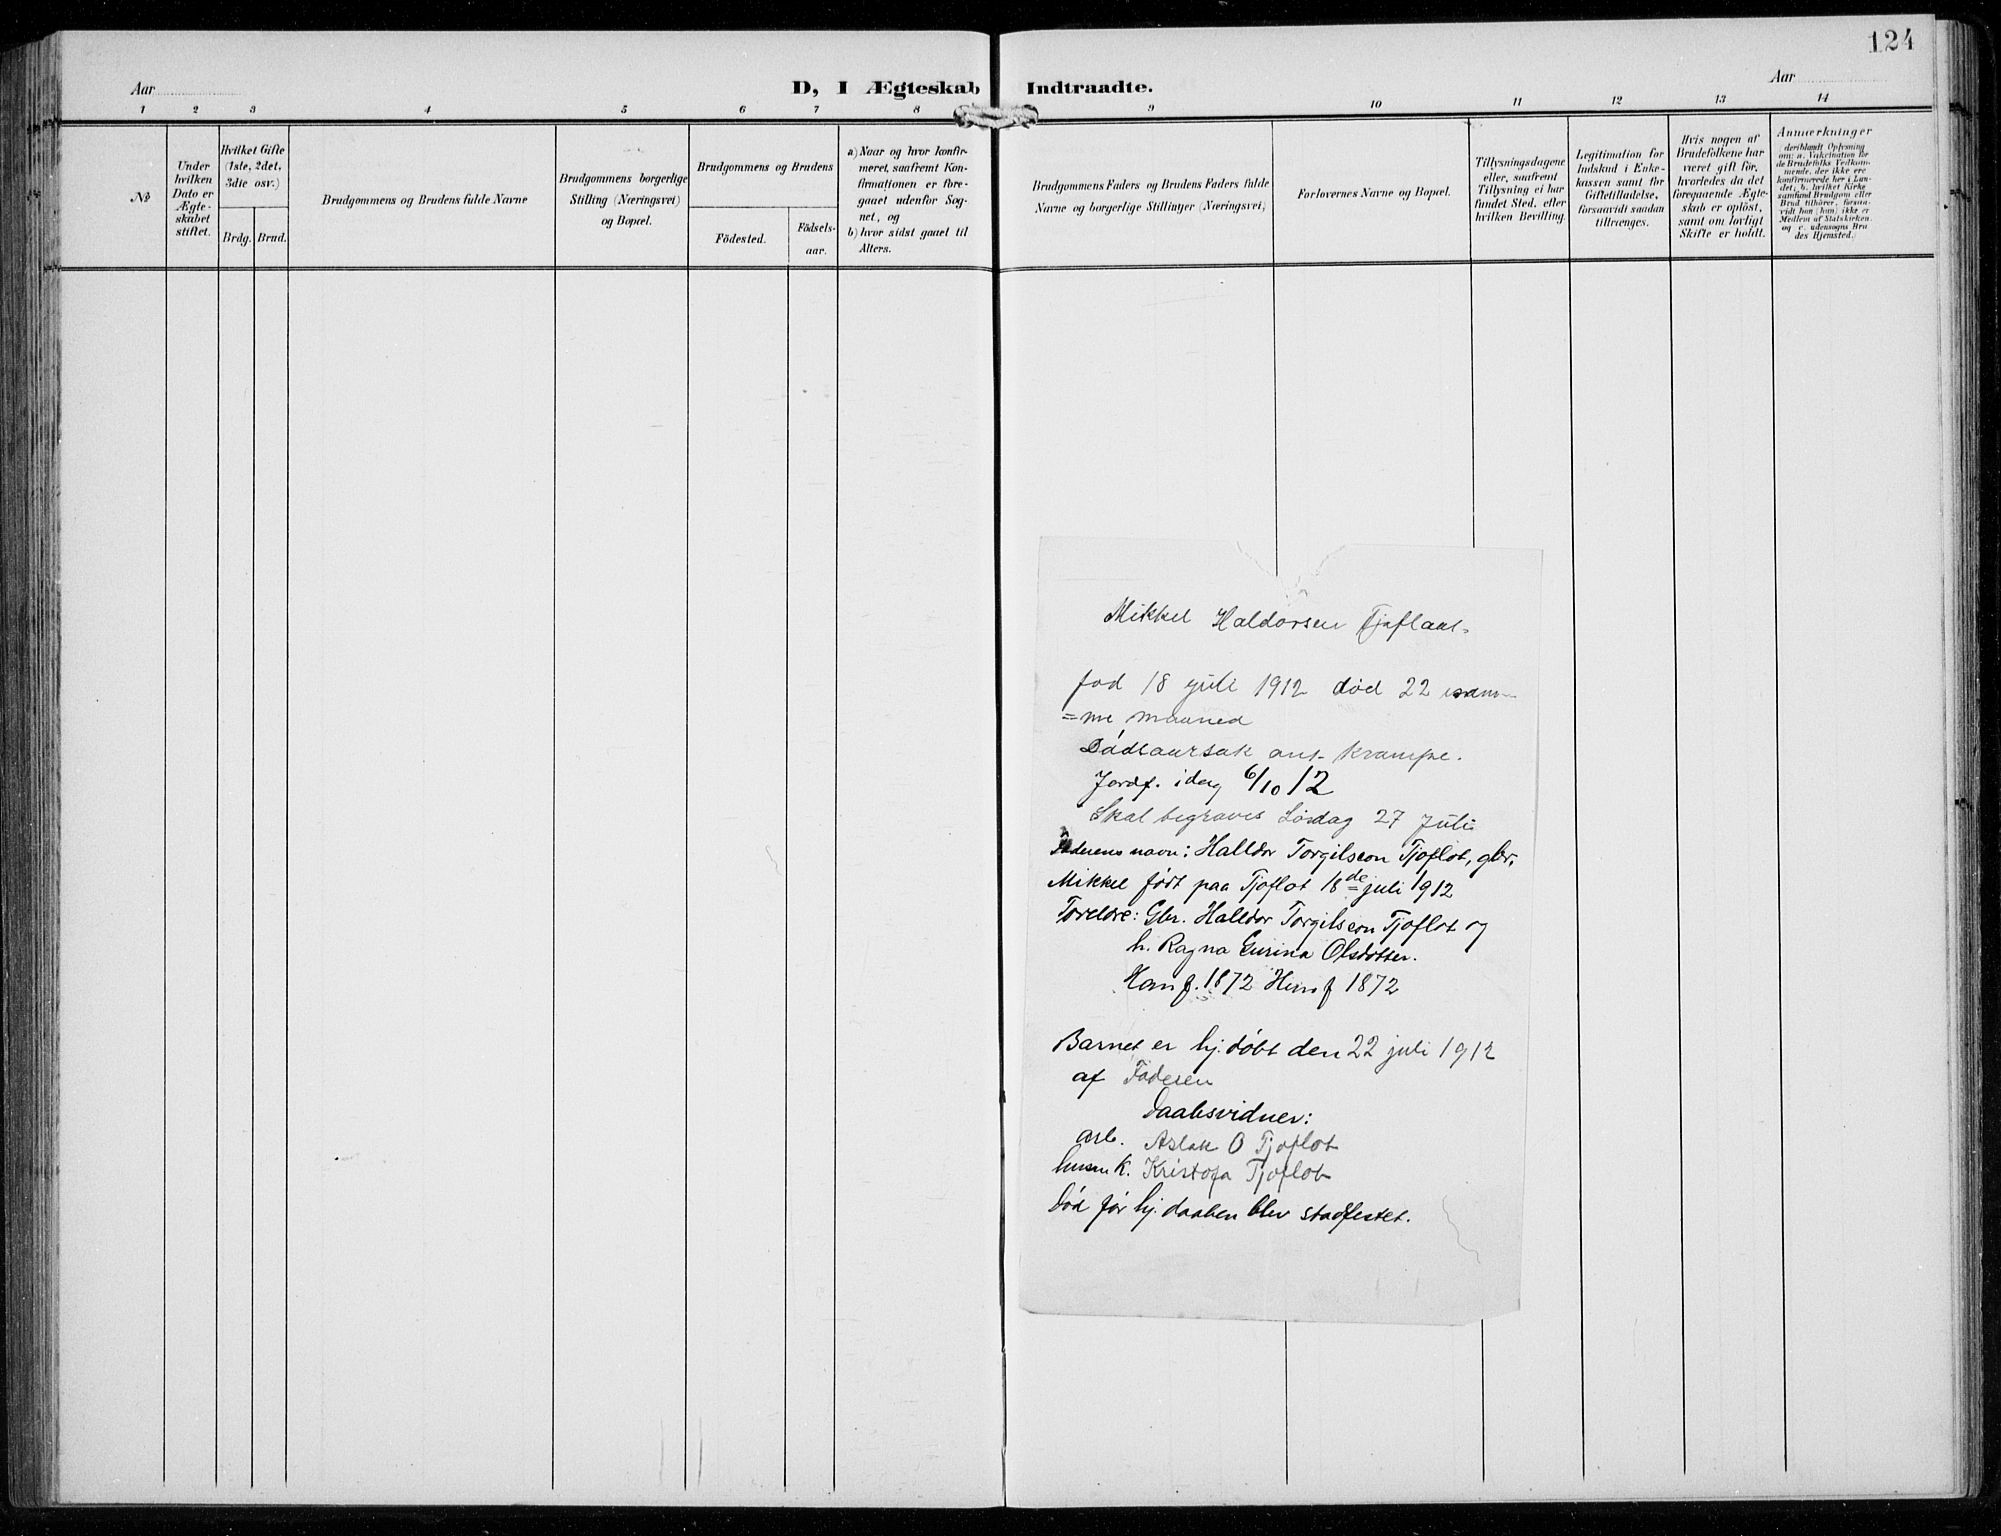 124
Aar
D, I Ægteskab Indtraadte.
Aar
1 2 3 4 5 6 7 8 9 10 11 12 13 14
No
Under
hvilken
Dato er
Ægte-
skabet
stiftet.
Hvilket Gifte
(1ste, 2det,
3die osv.)
Brdg. Brud.
Brudgommens og Brudens fulde Navne
Brudgommens borgerlige
Stilling (Næringsvei)
og Bopæl.
Brudgommens og Brudens
Födested.
Födsels-
aar.
a) Naar og hvor konfir-
meret, saafremt Kon-
firmationen er fore-
gaaet udenfor Sog-
net, og
b) hvor sidst gaaet til
Alters.
Brudgommens Faders og Brudens Faders fulde
Navne og borgerlige Stillinger (Næringsvei)
Forlovernes Navne og Bopæl.
Tillysningsdagene
eller, saafremt
Tillysning ei har
fundet Sted, efter
hvilken Bevilling.
Legitimation for
Indskud i Enke-
kassen samt for
Giftetilladelse,
forsaavidt saadan
tiltrænges.
Hvis nogen af
Brudefolkene har
været gift för,
hvorledes da det
foregaaende Ægte-
skab er oplöst,
samt om lovligt
Skifte er holdt.
Anmærkninger
(deriblandt Oplysning
om: a. Vakcination for
de Brudefolks Vedkom-
mende, der ikke ere
konfirmerede her i Lan-
det, b. hvilket Kirke
samfund Brudgom eller
Brud tilhörer, forsaa-
vidt han (hun) ikke er
Medlem af Statskirken.
og c. udensogns Bru
des Hjemsted.)
Mikkel Haldorsen
fød 18 juli 1912 død 22 sam-
=me maaned
Dødsaarsak ant. krampe.
Jordf. idag 6/10 12
Skal begraves Lørdag 27 Juli
Faderens navn: Halldor Torgilsson Tjoflot, gbr.
Mikkel født paa Tjoflot 18de juli 1912
Foreldre: Gbr. Halldor Torgilsson Tjoflot og
h. Ragna Gurina Olsdotter.
Han f. 1872 Hun f 1872
Barnet er hj. døbt den 22 juli 1912
af Faderen
Daabsvidner:
arb. Aslak O Tjoflot
husm k. Kristofa Tjoflot
Død før hj. daaben blev stadfestet.